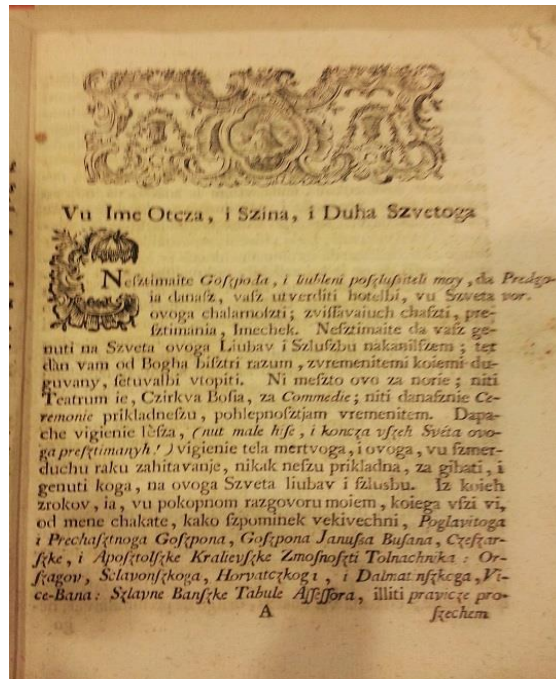 Vu Ime Otcza, i Szina, i Duha Szvetoga
Neſztimaite Goſzpoda, i liubleni poſzluſsiteli moy, da Predgo-
ia danaſz, vaſz utverditi hotelbi, vu Szveta vor.
ovoga chalarnoſzti; zviſſavaiuch chaſzti, pre-
ſztimania, Imechek. Neſztimaite da vaſz ge-
nuti na Szveta ovoga Liubav i Szluſzbu nakanilſzem; ter
dan vam od Bogha biſztri razum, zvremenitemi koiemi du-
guvany, ſetuvalbi vtopiti. Ni meſzto ovo za norie; niti
Teatrum ie, Czirkva Bosia, za Commedie; niti danaſznie Ce-
remonie prikladneſzu, pohlepnoſztjam vremenitem. Dapa-
che vigienie lèſza, (nut male hiſe, i koncza vſzeh Svéta ovo-
ga preſztimanyh!) vigienie tela mertvoga, i ovoga, vu ſzmer-
duchu raku zahitavanje, nikak neſzu prikladna, za gibati, i
genuti koga, na ovoga Szveta liubav i ſzlusbu. Iz koieh
zrokov, ia, vu pokopnom razgovoru moiem, koiega vſzi vi,
od mene chakate, kako ſzpominek vekivechni, Poglavitoga
i Prechaſztnoga Goſzpona, Goſzpona Januſsa Buſana, Czeſzar-
ſzke, i Apoſztolſzke Kralievſzke Zmoſnoſzti Tolnachnika: Or-
ſzagov, Sclavonſzkoga, Horvatczkoga, i Dalmatinſzkoga, Vi-
ce-Bana: Szlavne Banſzke Tabule Aſſeſſora, illiti pravicze pro-
A ſzechem